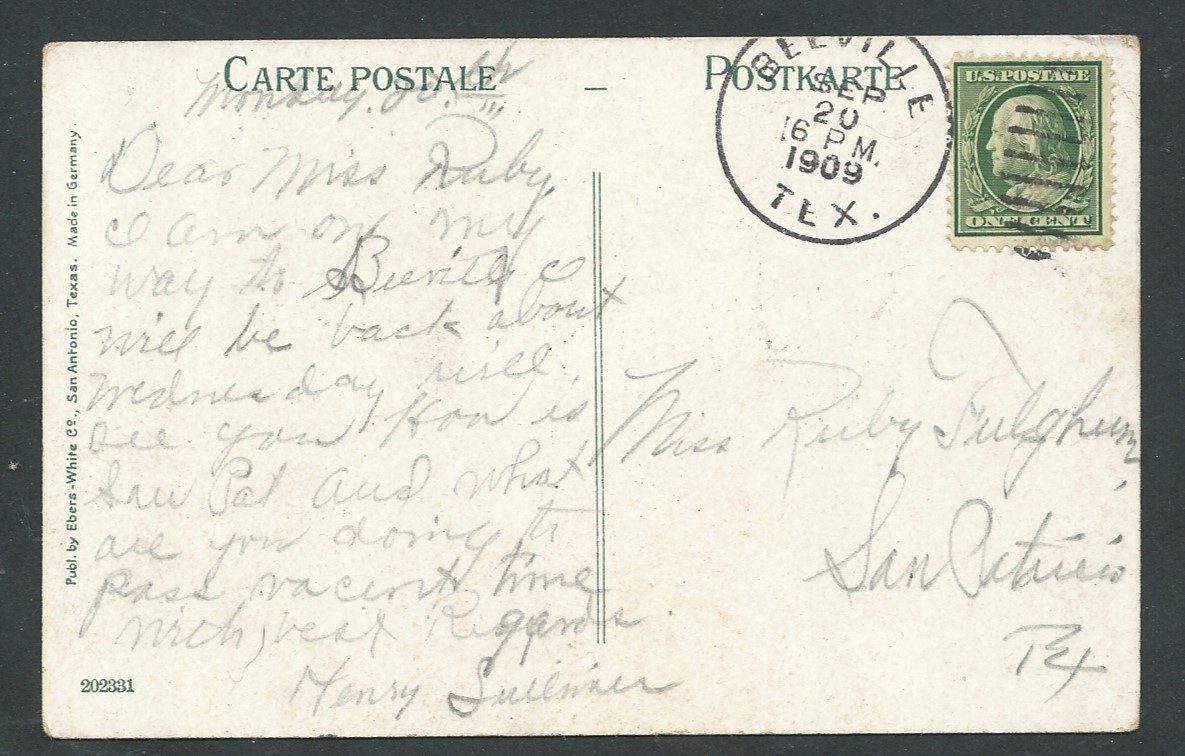 CARTE POSTALE – POSTKARTE
BEEVILLE
SEP
20
6 PM.
1909
TEX.
U.S. POSTAGE
ONE CENT
Monday. 20.th
Dear Miss Ruby
I am on my
way to Beeville I
will be back about
Wednesday will
see you How is
San Pat and what
are you doing to
pass vacent time
with best Regards
Henry Sullivan
Miss Ruby Fulghum
San Patricio
Tex
Publ. by Ebers-White Co., San Antonio, Texas. Made in Germany.
202331